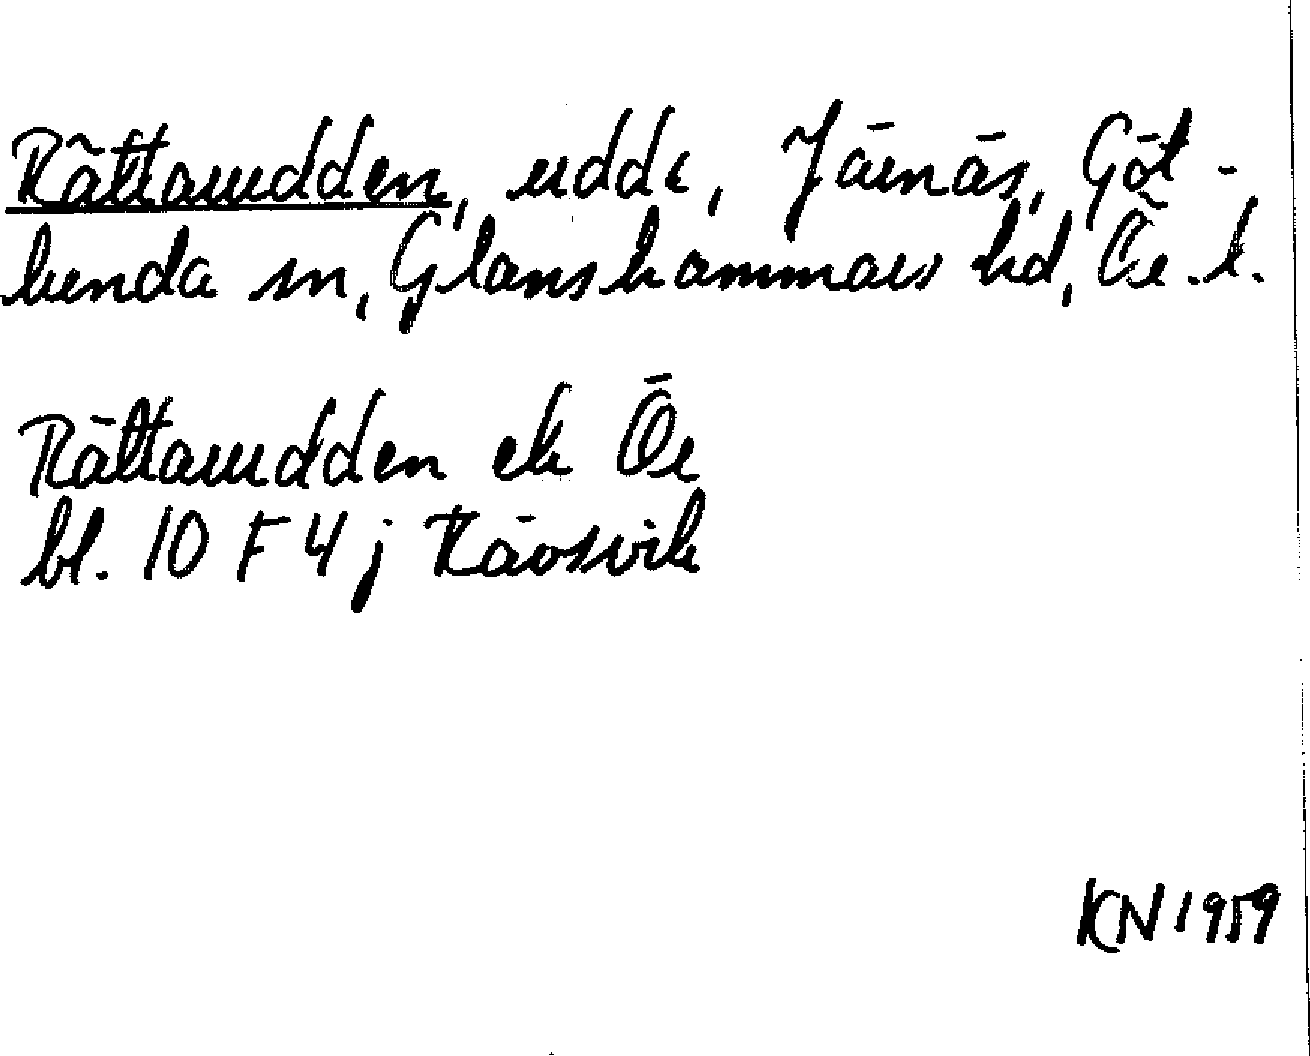 Rättarudden, udde, Järnäs, Göt-
lunda sn, Glanshammars hd, Ör. l.
Rättarudden ek Ör
bl. 10 F 4 j Rävsvik
KN 1959